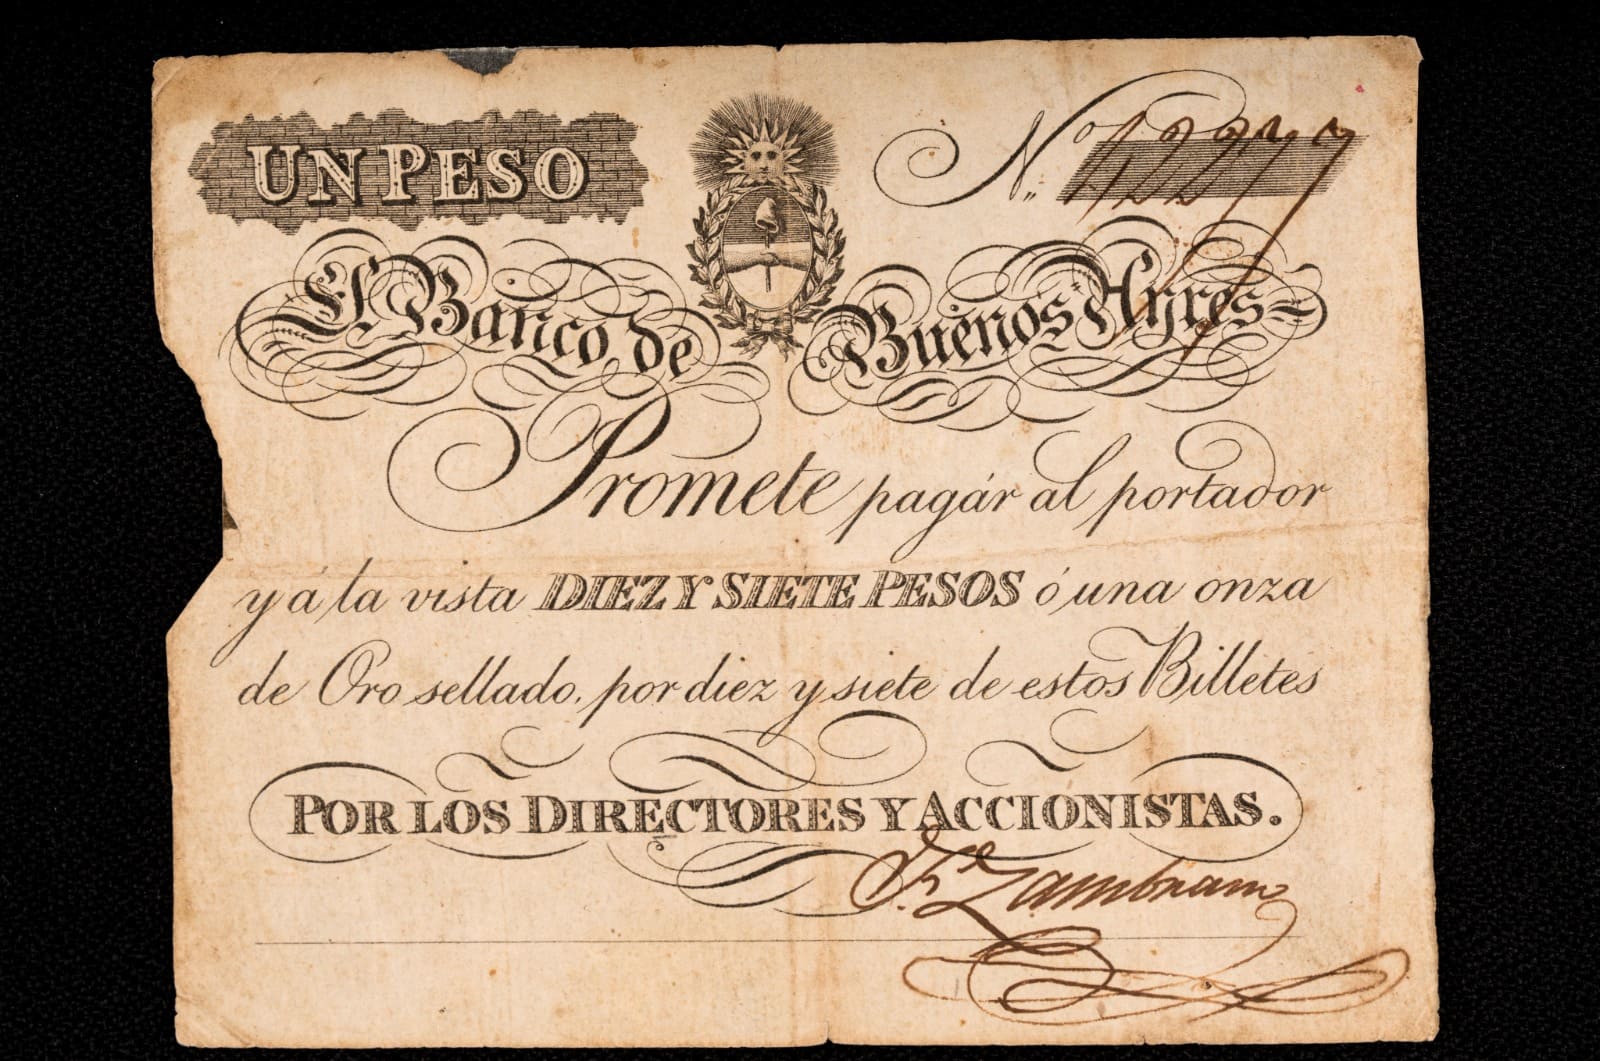 UN PESO
Nº 42277
El Banco de Buenos Ayres
Promete pagár al portador
y á la vista DIEZ Y SIETE PESOS ó una onza
de Oro sellado, por diez y siete de estos Billetes
POR LOS DIRECTORES Y ACCIONISTAS.
Zambrano